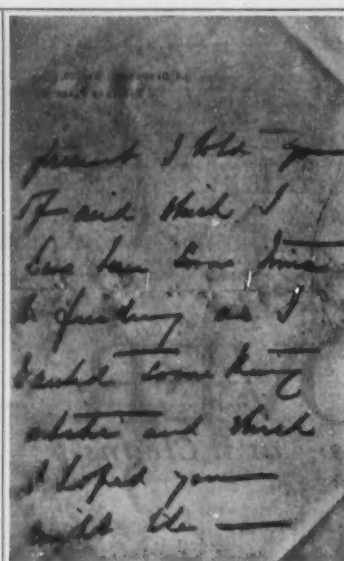 present I told you
of and which I
have been some time
in finding as I
wanted something
artistic and which
I hoped you
might like